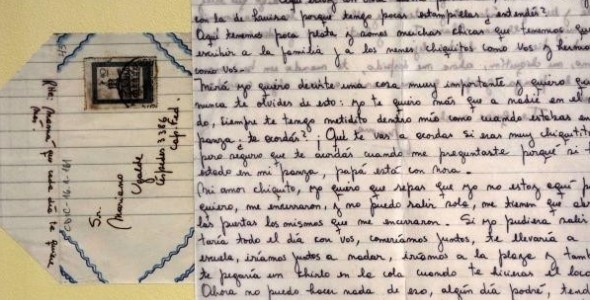 45
Sr.
Mariano
Ugalde
Céspedes 3366
Cap. Fed.
Rte. Mamá que cada día te quiere
más
CDIC-16-1-181
con la de Laurita porque tengo pocas estampillas y entendés?
Aquí tenemos poca plata y somos muchas chicas que tenemos que
escribir a la familia y a los nenes chiquitos como vos y hermosos
como vos.
Mirá yo quiero decirte una cosa muy importante y quiero que
nunca te olvides de esto: yo te quiero más que a nadie en el mun
do, siempre te tengo metidito dentro mío como cuando estabas en
panza ¿te acordás? ¡Qué te vas a acordar si eras muy chiquitito
pero seguro que te acordás cuando me preguntaste porqué si
estado en mi panza, papá está con Nora.
Mi amor chiquito, yo quiero que sepas que yo no estoy aquí
quiero, me encerraron, y no puedo salir sola, me tienen que abrir
las puertas los mismos que me encerraron. Si yo pudiera salir
taría todo el día con vos, comeríamos juntos, te llevaría a
escuela, iríamos juntos a nadar, iríamos a la plaza y también
te pegaría un chirlo en la cola cuando te hicieras el loco
Ahora no puedo hacer nada de eso, algún día podré, tendr